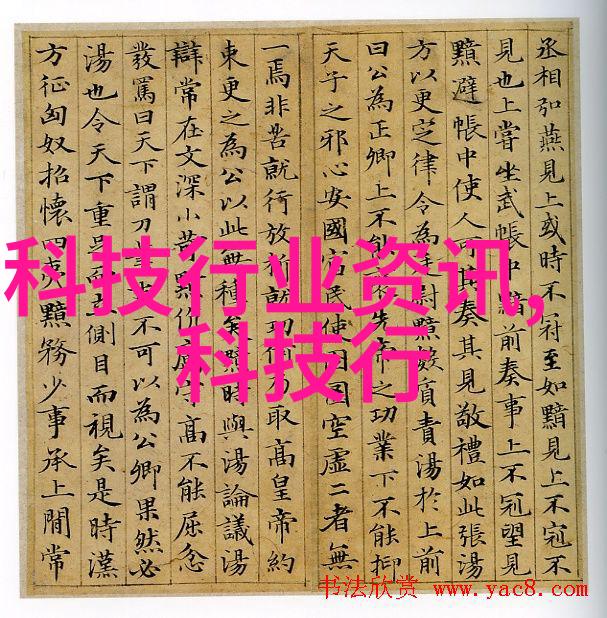 丞相弘燕見上或時不冠至如黯見上不冠不
見也上嘗坐武帳中黯前奏事上不冠望見
黯避帳中使人可其奏其見敬禮如此張湯
方以更定律令為廷尉黯數質責湯於上前
曰公為正卿上不能先帝之功業下不能抑
天子之邪心安國富民使囹圄空虛二者無
一焉非苦就行放析就功何乃取高皇帝約
束更之為公以此無種矣黯時與湯論議湯
辯常在文深小苛黯伉厲守高不能屈忿
發罵曰天下謂刀筆吏不可以為公卿果然必
湯也令天下重足而立側目而視矣是時漢
方征匈奴招懷四夷黯務少事承上間常
科技行业资讯,
科技行
书法欣赏 www.yac8.com